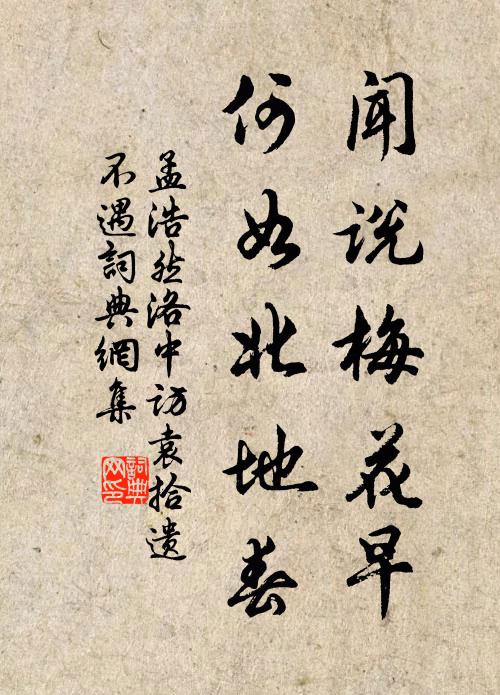 闻说梅花早
何如北地春
孟浩然洛中访袁拾遗
不遇詞典網集
詞典
网印